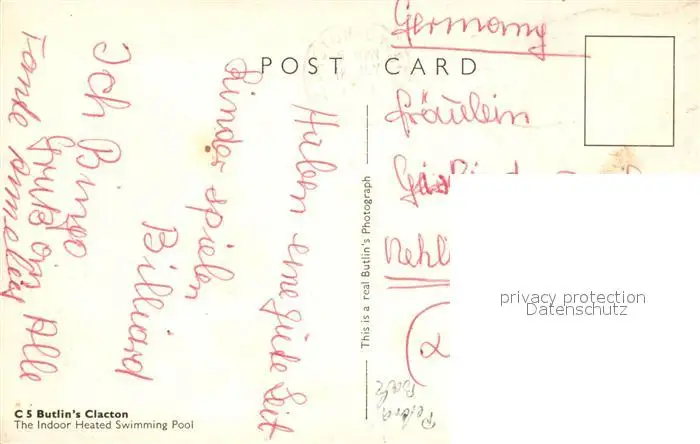 POST CARD
Haben eine gute Zeit
Kinder spielen
Billiard
Ich Bingo
Gruß an Alle
Tante Annelies
Germany
Fräulein
Kehl
This is a real Butlin's Photograph
privacy protection
Datenschutz
C5 Butlin's Clacton
The Indoor Heated Swimming Pool